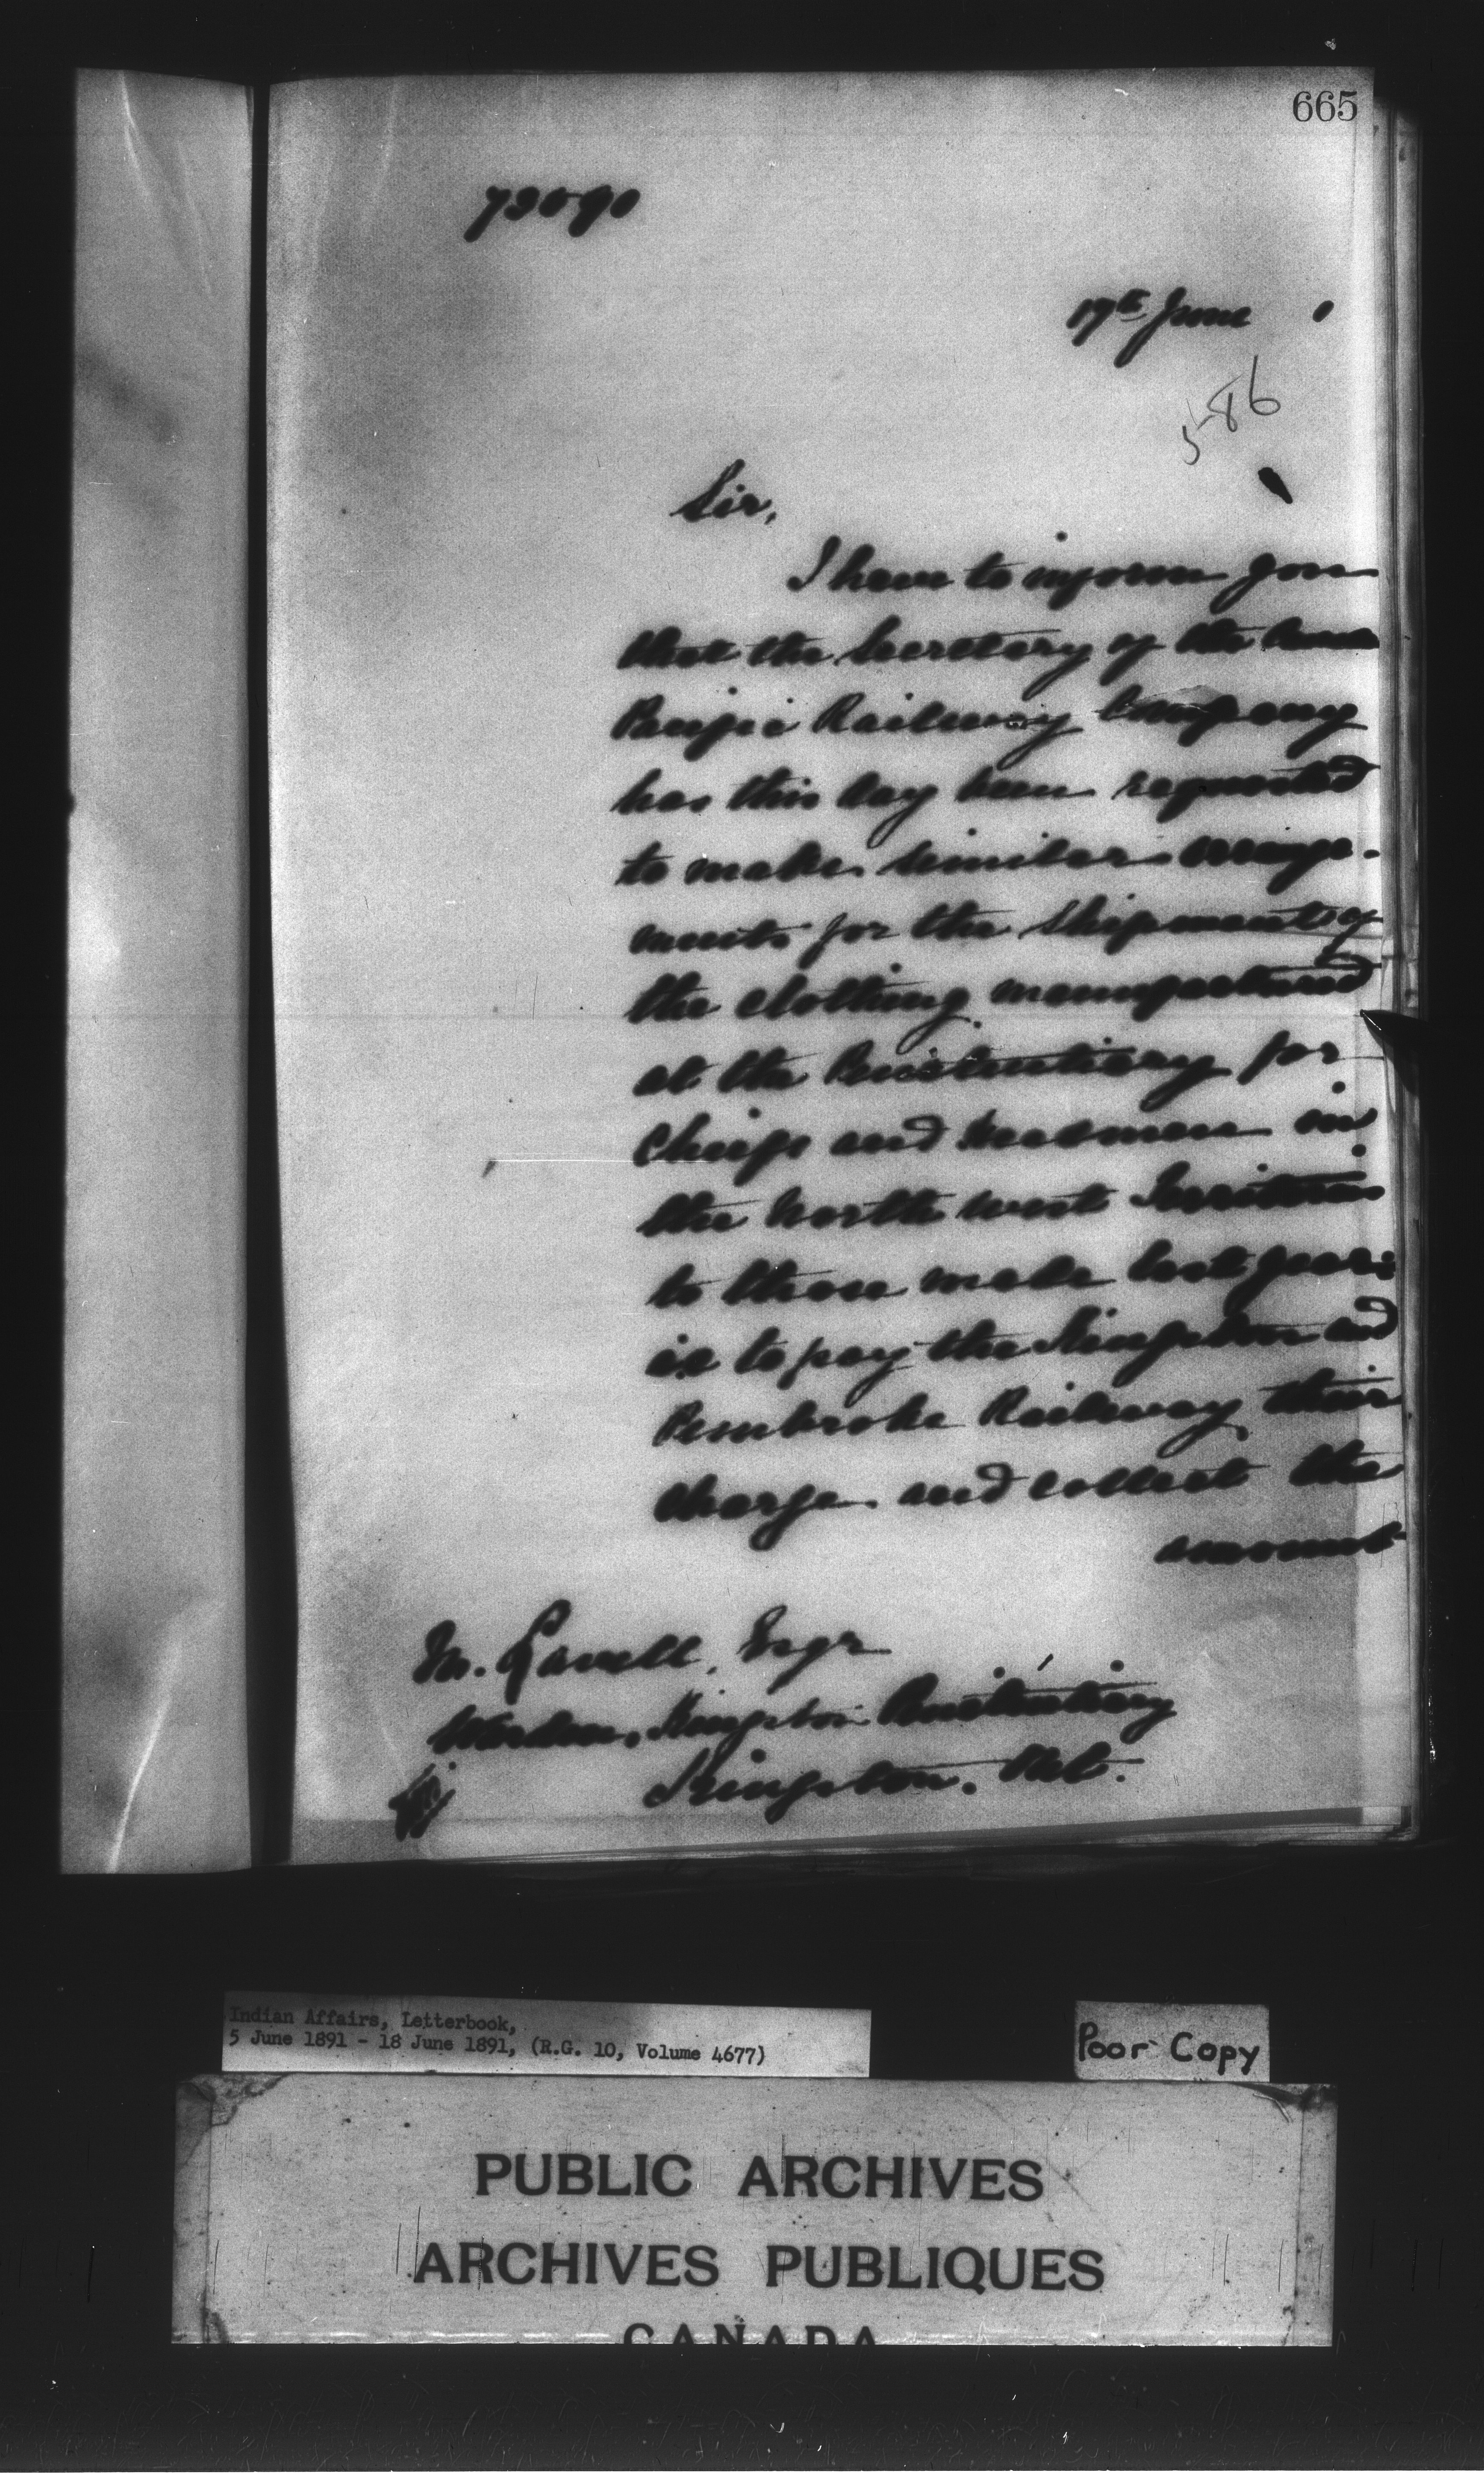 665
73090
17th June 1
586
Sir,
I have to inform you
that the Secretary of the
Pacific Railway Company
has this day been requested
to make similar arrange-
ments for the shipment of
the clothing manufactured
at the Penitentiary for
Chiefs and Headmen in
the North west Territories
to those made last year:
ie to pay the Kingston and
Pembroke Railway their
charge and collect the
amount
M. Lavell, Esqr
Warden, Kingston Penitentiary
Kingston. Ont.
Indian Affairs, Letterbook,
5 June 1891 - 18 June 1891, (R.G. 10, Volume 4677)
Poor Copy
PUBLIC ARCHIVES
ARCHIVES PUBLIQUES
CANADA